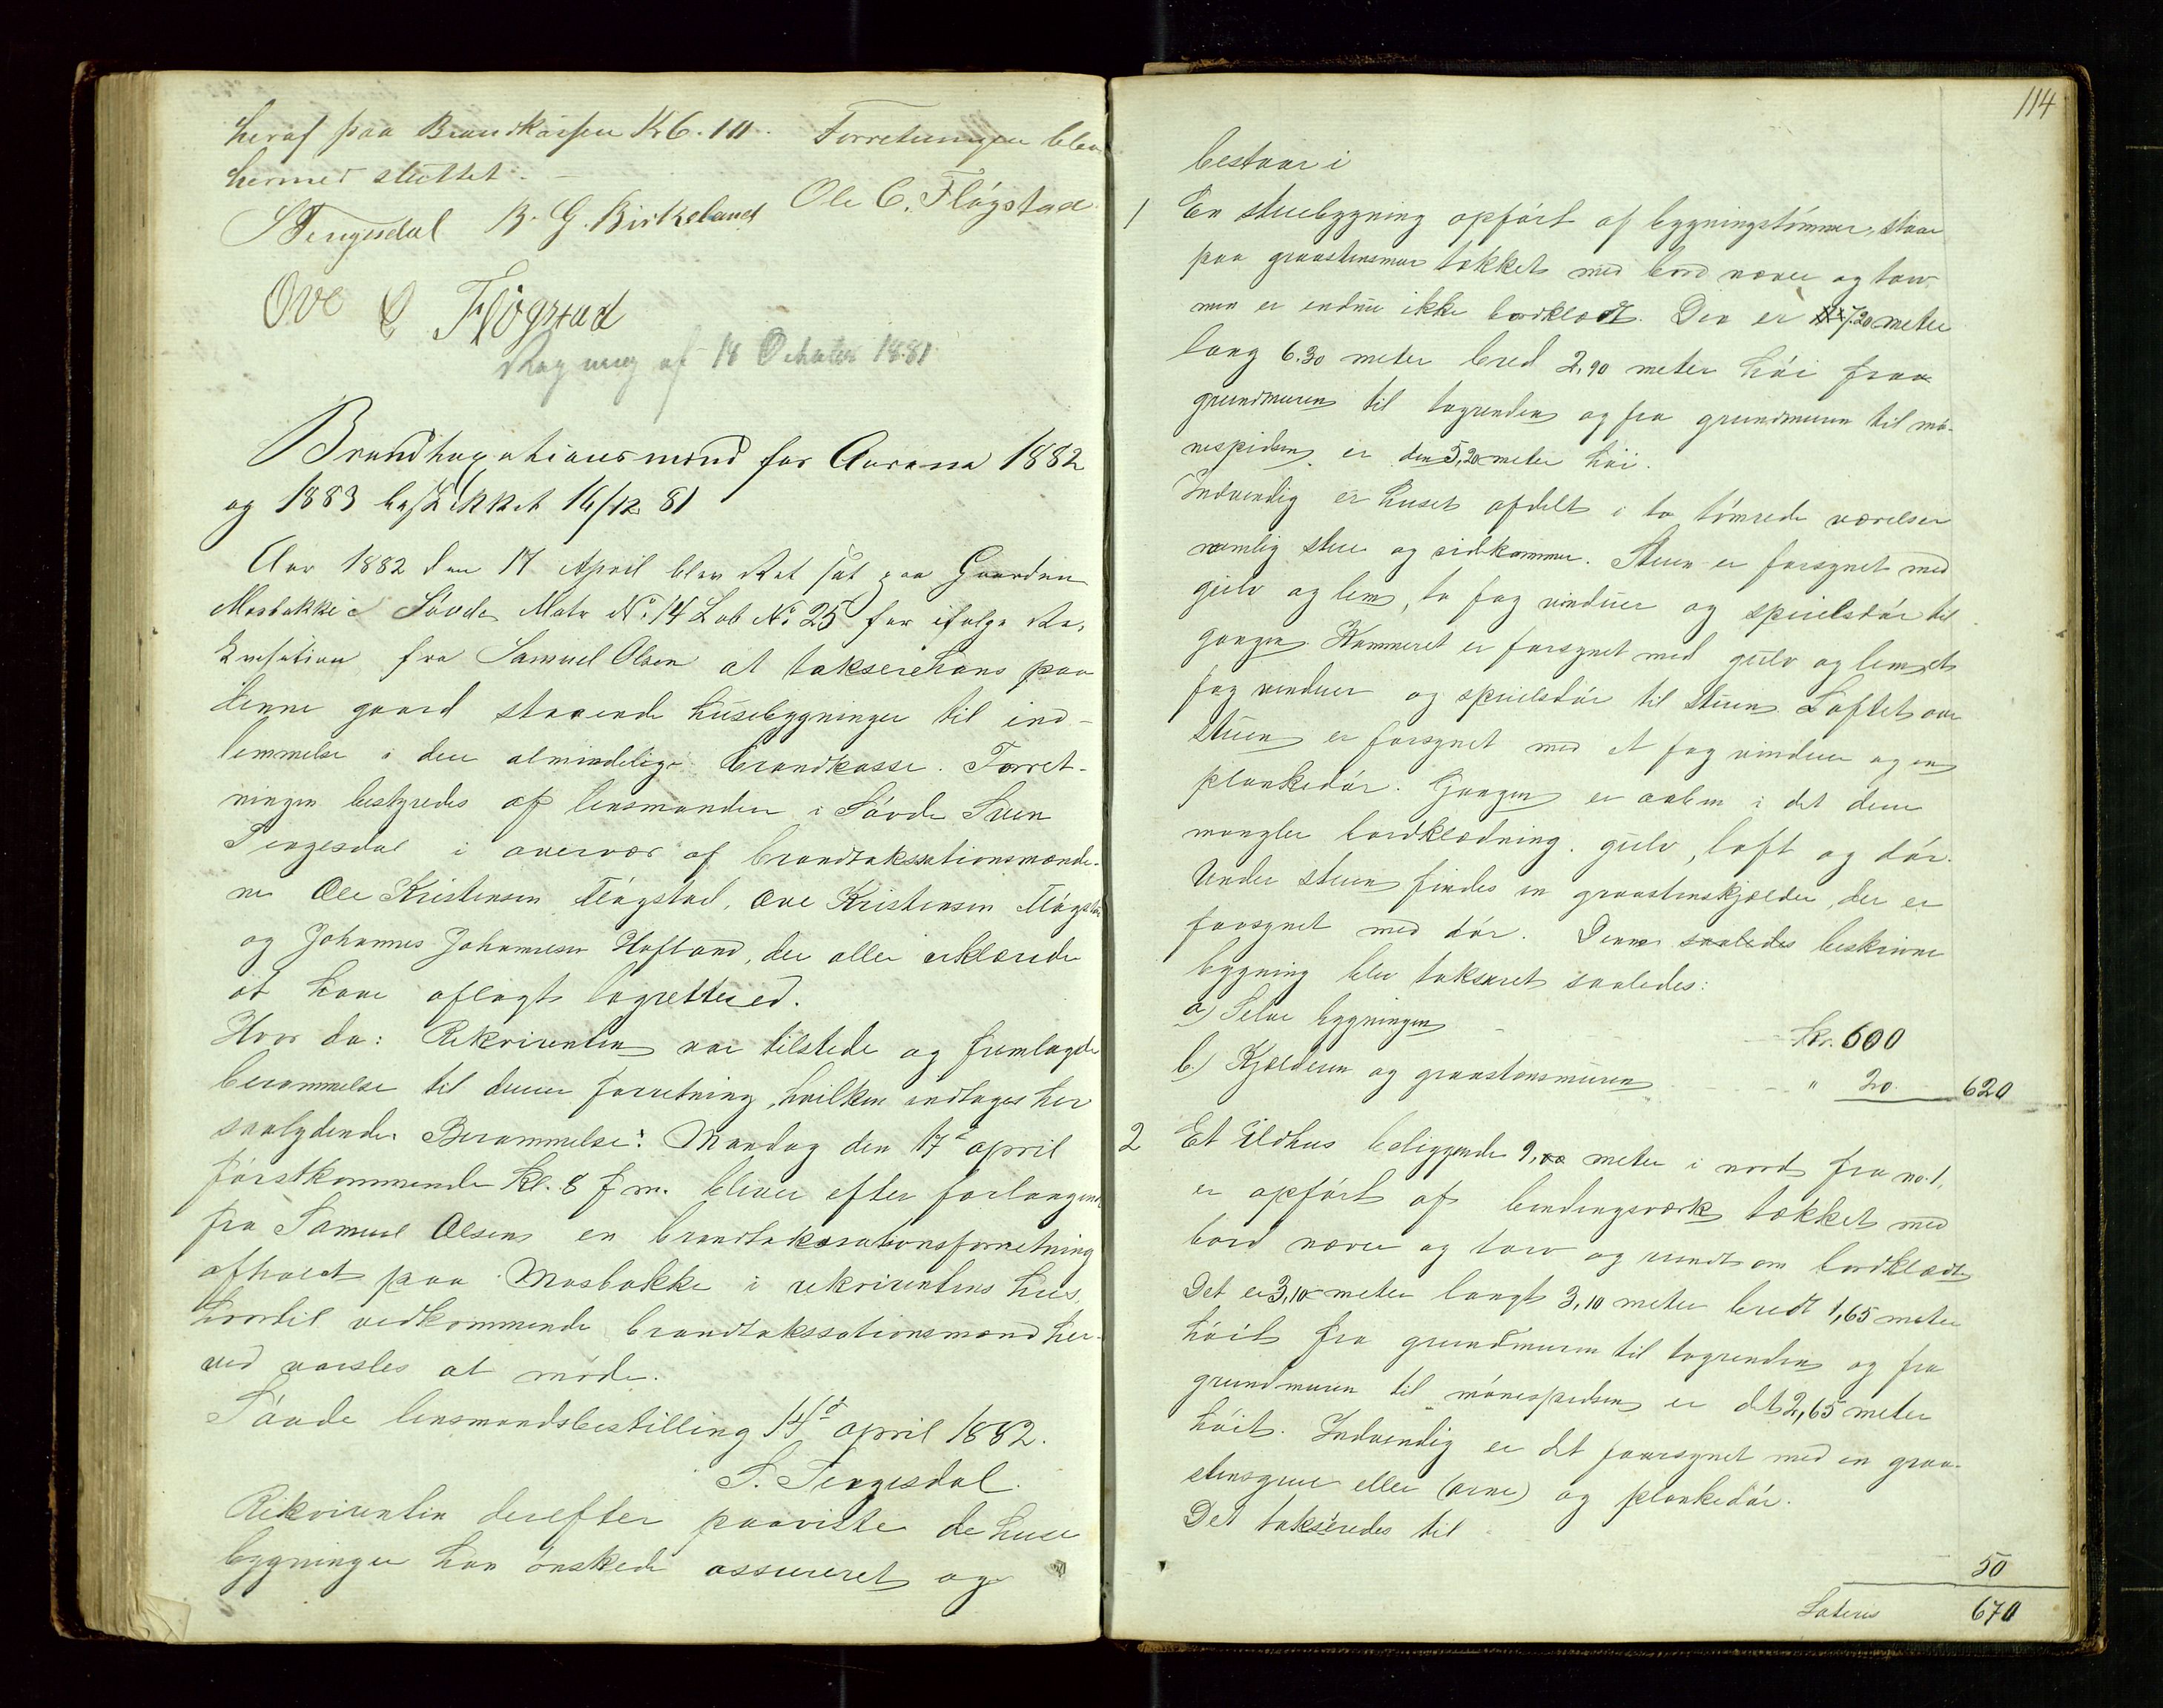 heraf paa Brandkassen Kr 6.10. Forretningen blev
hermed sluttet. –
STengesdal B. G. Birkeland Ole C. Fløgstad
Ove C Fløgstad
af 18 October 1881
Brandtaxationsmænd for Aarene 1882
og 1883 beskikket 16/12 81
Aar 1882 den 17 April blev Ret sat paa Gaarden
Mosbakke i Søvde Matr No 14 Løb No 25 for ifølge Re-
kvisition fra Samuel Olsen at taksere hans paa
denne gaard staaende husebygninger til ind-
lemmelse i den almindelige brandkasse. Forret-
ningen bestyredes af lensmanden i Søvde Sven
Tengesdal i overvær af brandtakssationsmænde-
ne Ole Kristensen Fløgstad, Ove Kristensen Fløgstad
og Johannes Johannesen Hofland, der alle erklærede
at have aflagt lagrettesed.
Hvor da: Rekvirenten var tilstede og fremlagde
berammelse til denne forretning, hvilken indtages her
saalydende: Berammelse: Mandag den 17de april
førstkommende kl. 8 f m. bliver efter forlangende
fra Samuel Olsen en brandtakssationsforretning
afholdt paa Mosbakke i rekvirentens hus,
hvortil vedkommende brandtakssationsmænd her-
ved varsles at møde.
Søvde lensmandsbestilling 14de april 1882.
S. Tengesdal.
Rekvirenten derefter paaviste de huse
bygninger han ønskede assureret og
114
bestaar i
1 En stuebygning opført af bygningstømmer, staar
paa graastensmur tækket med bord næver og torv
men er endnu ikke bordklædt. Den er 7,20 meter
lang 6.30 meter bred 2,90 meter høi fra
grundmuren til tagrenden og fra grundmuren til mø-
nespidsen er den 5,20 meter høi.
Indvendig er huset afdelt i to tømrede værelser
nemlig stue og sidekammer. Stuen er forsynet med
gulv og lem, to fag vinduer og speilsdør til
gangen. Kammeret er forsynet med gulv og lem, et
fag vinduer og speilsdør til stuen. Loftet over
stuen er forsynet med et fag vinduer og en
plankedør. Gangen er aaben i det den
mangler bordklædning, gulv, loft og dør.
Under stuen findes en graastenskjælder, der er
forsynet med dør. Denne saaledes beskrevne
bygning blev takseret saaledes:
a) Selve bygningen kr. 600
b) Kjælderen og graastensmuren " 20. 620
2 Et Ildhus beliggende 9,00 meter i nord fra no. 1,
er opført af bindingsværk tækket med
bord næver og torv og rundt om bordklædt
Det er 3,10 meter langt 3,10 meter bredt 1,65 meter
høit fra grundmuren til tagrenden og fra
grundmuren til mønespidsen er det 2,65 meter
høit. Indvendig er det forsynet med en graa-
stensgrue eller (arne) og plankedør.
Det takseredes til
50
Lateris 670